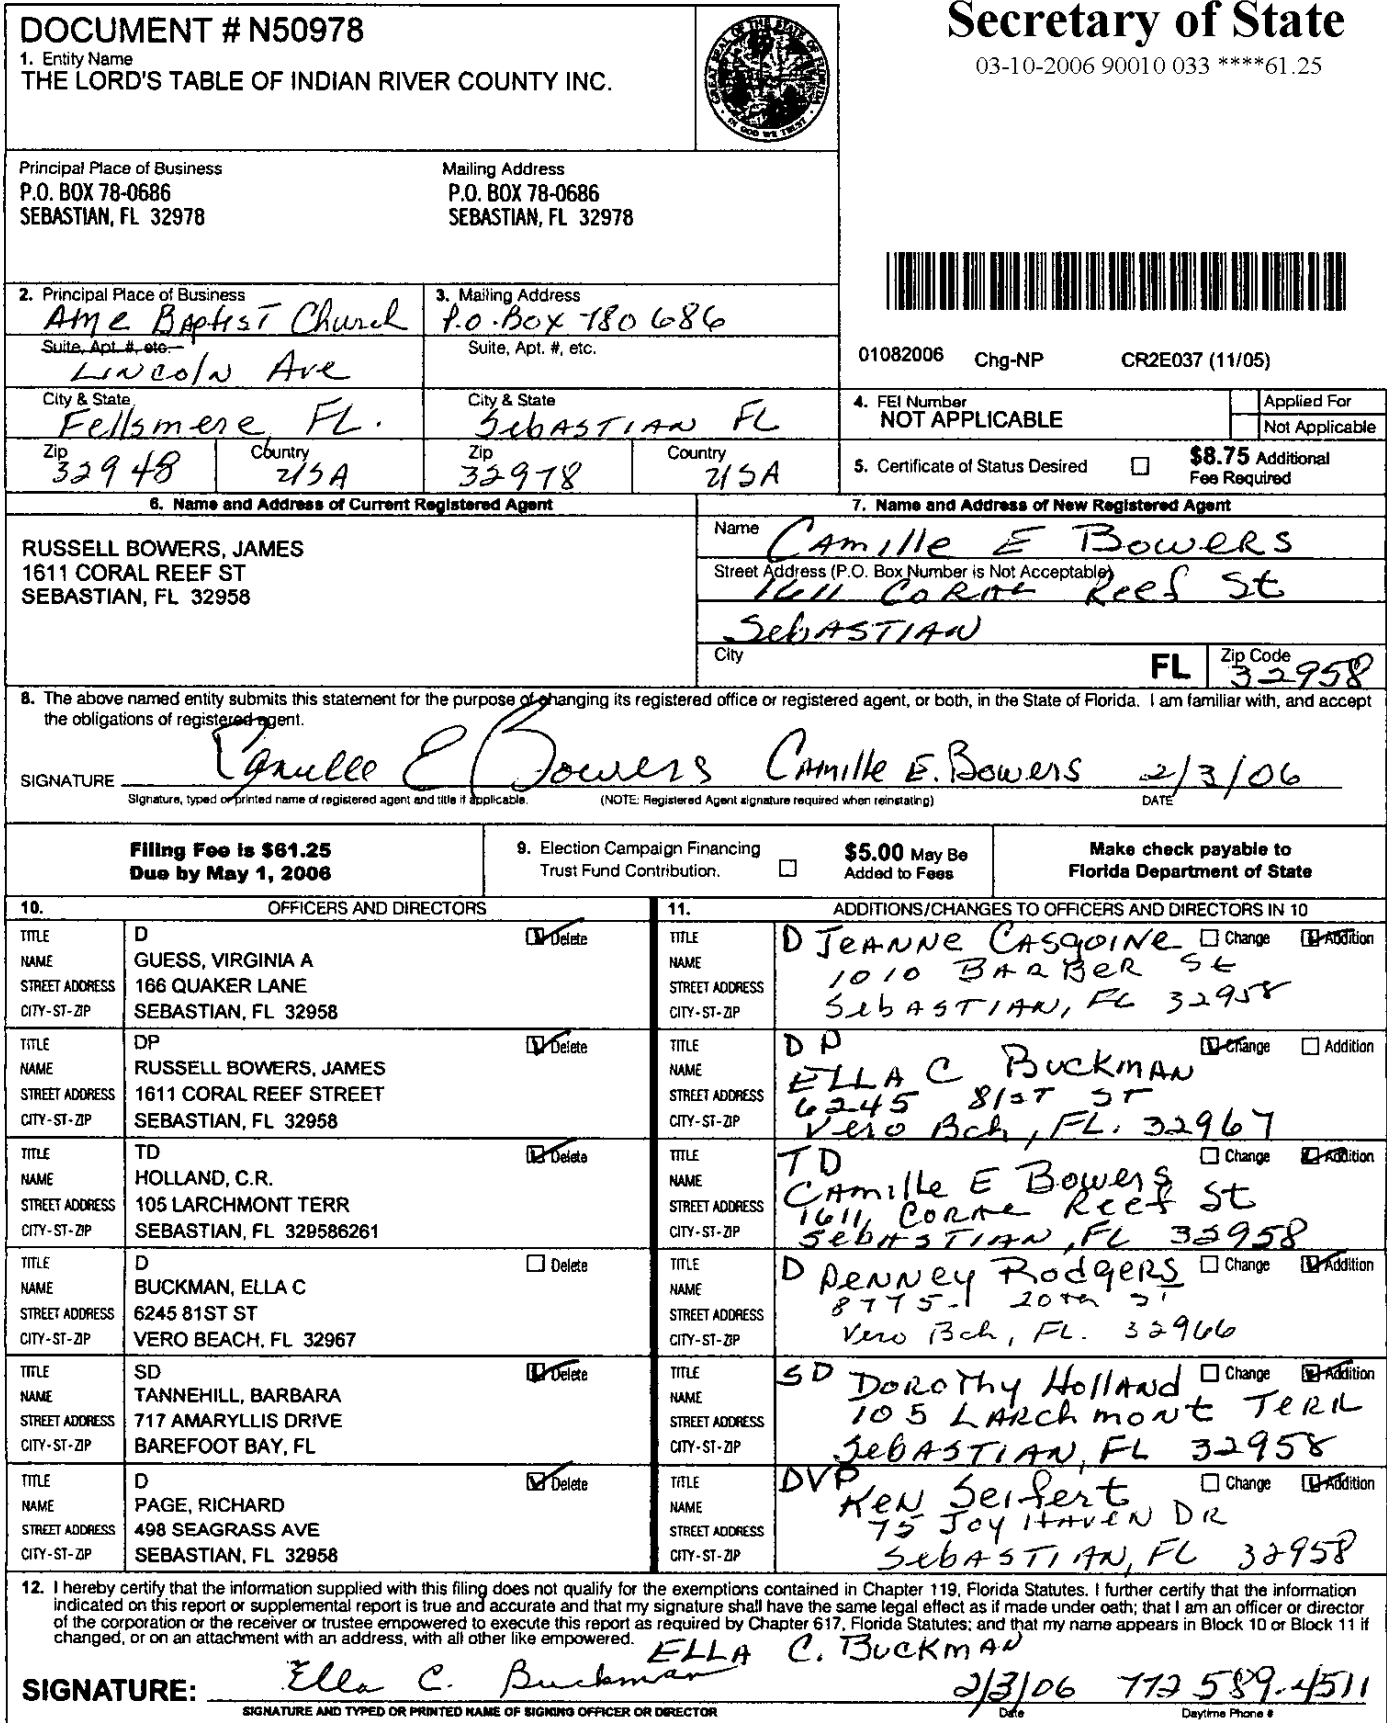 DOCUMENT # N50978
1. Entity Name
THE LORD'S TABLE OF INDIAN RIVER COUNTY INC.
GREAT SEAL OF THE STATE OF FLORIDA
IN GOD WE TRUST
Secretary of State
03-10-2006 90010 033 ****61.25
Principal Place of Business
P.O. BOX 78-0686
SEBASTIAN, FL 32978
Mailing Address
P.O. BOX 78-0686
SEBASTIAN, FL 32978
2. Principal Place of Business
AME BAptist Church
Suite, Apt. #, etc.
LINcolN Ave
City & State
Fellsmere FL.
Zip
32948
Country
USA
3. Mailing Address
P.O. Box 780686
Suite, Apt. #, etc.
City & State
SebASTIAN FL
Zip
32978
Country
USA
01082006 Chg-NP CR2E037 (11/05)
4. FEI Number
NOT APPLICABLE
Applied For
Not Applicable
5. Certificate of Status Desired
$8.75 Additional
Fee Required
6. Name and Address of Current Registered Agent
RUSSELL BOWERS, JAMES
1611 CORAL REEF ST
SEBASTIAN, FL 32958
7. Name and Address of New Registered Agent
Name CAmille E BoweRS
Street Address (P.O. Box Number is Not Acceptable)
1611 CORAL Reef St
SebASTIAN
City
FL
Zip Code
32958
8. The above named entity submits this statement for the purpose of changing its registered office or registered agent, or both, in the State of Florida. I am familiar with, and accept
the obligations of registered agent.
SIGNATURE Camille E Bowers CAmille E. Bowers 2/3/06
Signature, typed or printed name of registered agent and title if applicable. (NOTE: Registered Agent signature required when reinstating) DATE
Filing Fee is $61.25
Due by May 1, 2006
9. Election Campaign Financing
Trust Fund Contribution.
$5.00 May Be
Added to Fees
Make check payable to
Florida Department of State
10. OFFICERS AND DIRECTORS
TITLE D Delete
NAME GUESS, VIRGINIA A
STREET ADDRESS 166 QUAKER LANE
CITY-ST-ZIP SEBASTIAN, FL 32958
TITLE DP Delete
NAME RUSSELL BOWERS, JAMES
STREET ADDRESS 1611 CORAL REEF STREET
CITY-ST-ZIP SEBASTIAN, FL 32958
TITLE TD Delete
NAME HOLLAND, C.R.
STREET ADDRESS 105 LARCHMONT TERR
CITY-ST-ZIP SEBASTIAN, FL 329586261
TITLE D Delete
NAME BUCKMAN, ELLA C
STREET ADDRESS 6245 81ST ST
CITY-ST-ZIP VERO BEACH, FL 32967
TITLE SD Delete
NAME TANNEHILL, BARBARA
STREET ADDRESS 717 AMARYLLIS DRIVE
CITY-ST-ZIP BAREFOOT BAY, FL
TITLE D Delete
NAME PAGE, RICHARD
STREET ADDRESS 498 SEAGRASS AVE
CITY-ST-ZIP SEBASTIAN, FL 32958
11. ADDITIONS/CHANGES TO OFFICERS AND DIRECTORS IN 10
TITLE D JEANNE CASGOINE Change Addition
NAME 1010 BARBER St
STREET ADDRESS
CITY-ST-ZIP SebASTIAN, FL 32958
TITLE DP Change Addition
NAME ELLA C BuckmAN
STREET ADDRESS 6245 81ST ST
CITY-ST-ZIP Vero Bch, FL. 32967
TITLE TD Change Addition
NAME CAmille E Bowers
STREET ADDRESS 1611 CORAL Reef St
CITY-ST-ZIP SebASTIAN, FL 32958
TITLE D PENNEY RodgeRS Change Addition
NAME 8775-1 20th St
STREET ADDRESS
CITY-ST-ZIP Vero Bch, FL. 32966
TITLE SD DOROThy HollAND Change Addition
NAME
STREET ADDRESS 105 LARchmoNt TeRR
CITY-ST-ZIP SebASTIAN, FL 32958
TITLE DVP Change Addition
NAME KEN Seifert
STREET ADDRESS 75 Joy HAVEN DR
CITY-ST-ZIP SebASTIAN, FL 32958
12. I hereby certify that the information supplied with this filing does not qualify for the exemptions contained in Chapter 119, Florida Statutes. I further certify that the information
indicated on this report or supplemental report is true and accurate and that my signature shall have the same legal effect as if made under oath; that I am an officer or director
of the corporation or the receiver or trustee empowered to execute this report as required by Chapter 617, Florida Statutes; and that my name appears in Block 10 or Block 11 if
changed, or on an attachment with an address, with all other like empowered.
ELLA C. BuckmAN
SIGNATURE: Ella C. Buckman 2/3/06 772 589-4511
SIGNATURE AND TYPED OR PRINTED NAME OF SIGNING OFFICER OR DIRECTOR Date Daytime Phone #